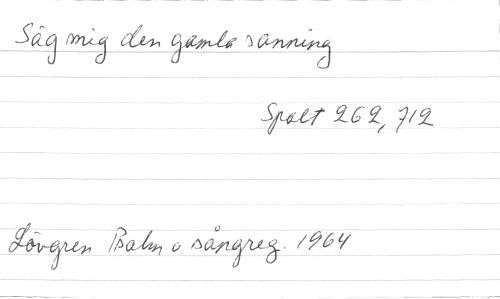 Säg mig den gamla sanning
Spalt 262, 712
Lövgren Psalm o. sångreg. 1964